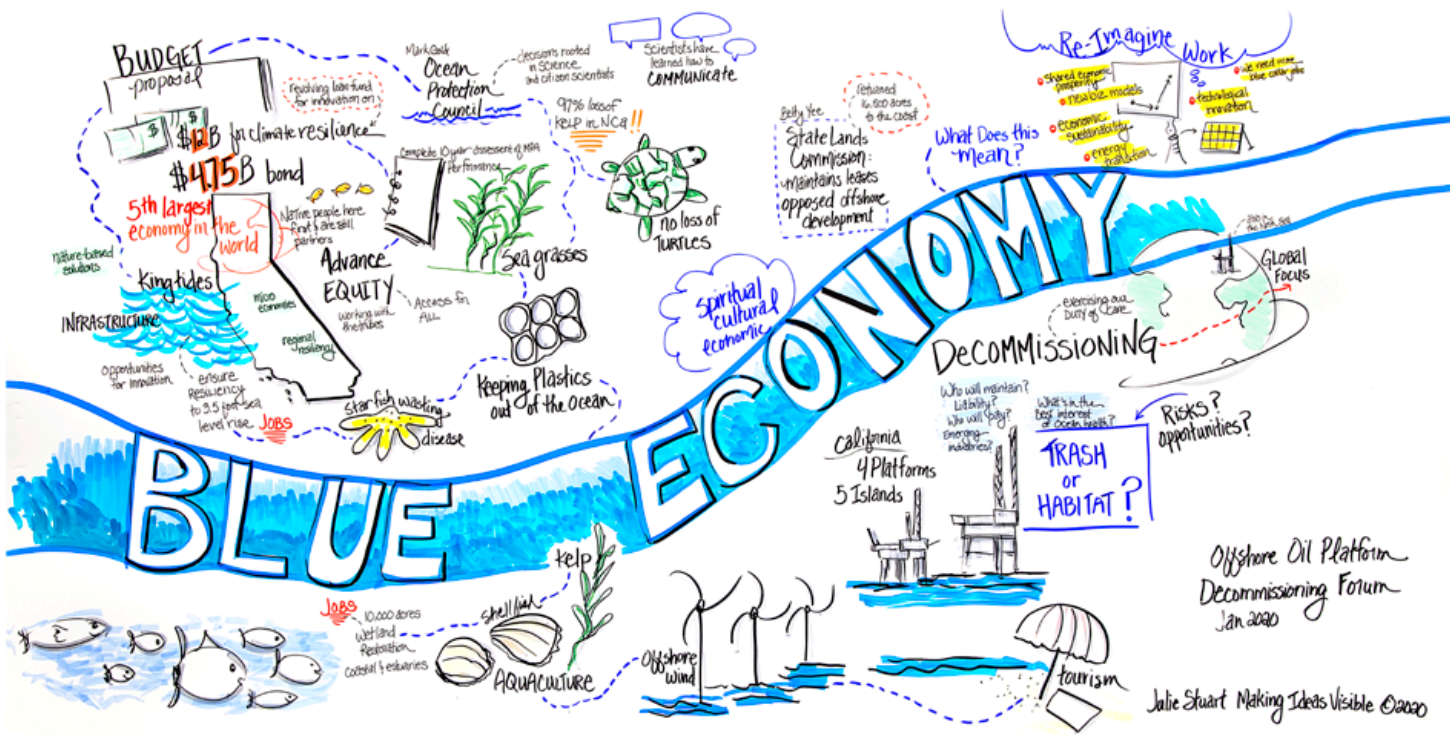 BUDGET
proposal
Revolving loan fund
for innovation on
$12B for climate resilience
$4.75B bond
5th largest
economy in the
world
Native people here
first & are still
partners
nature-based
solutions
King tides
INFRASTRUCTURE
micro
economies
regional
resiliency
Opportunities
for Innovation
ensure
Resiliency
to 3.5 foot sea
level rise
JOBS
Advance
EQUITY
working with
the tribes
Access for
ALL
Mark Gold
Ocean
Protection
Council
decisions rooted
in Science
and citizen scientists
Scientists have
learned how to
COMMUNICATE
97% loss of
KELP in NCa !!
Complete 10 year assessment of MPA
Performance
Sea grasses
no loss of
TURTLES
Keeping Plastics
out of the Ocean
Starfish wasting
disease
Betty Yee
State Lands
Commission:
maintains leases
opposed offshore
development
returned
16,500 acres
to the coast
What Does this
mean?
Re-Imagine
Work
shared economic
prosperity
new biz models
economic
sustainability
energy
transition
we need more
blue collar jobs
technological
innovation
Spiritual
cultural
economic
BLUE ECONOMY
the North Sea
GLOBAL
FOCUS
exercising our
DUTY of CARE
DeCOMMISSIONING
Who will maintain?
Liability?
Who will pay?
Emerging
industries?
What's in the
Best interest
of Ocean health?
RISKS?
opportunities?
TRASH
or
HABITAT?
California
4 Platforms
5 Islands
JOBS
10,000 acres
Wetland
Restoration
Coastal & estuaries
shellfish
kelp
AQUACULTURE
Offshore
wind
tourism
Offshore Oil Platform
Decommissioning Forum
Jan 2020
Julie Stuart Making Ideas Visible ©2020